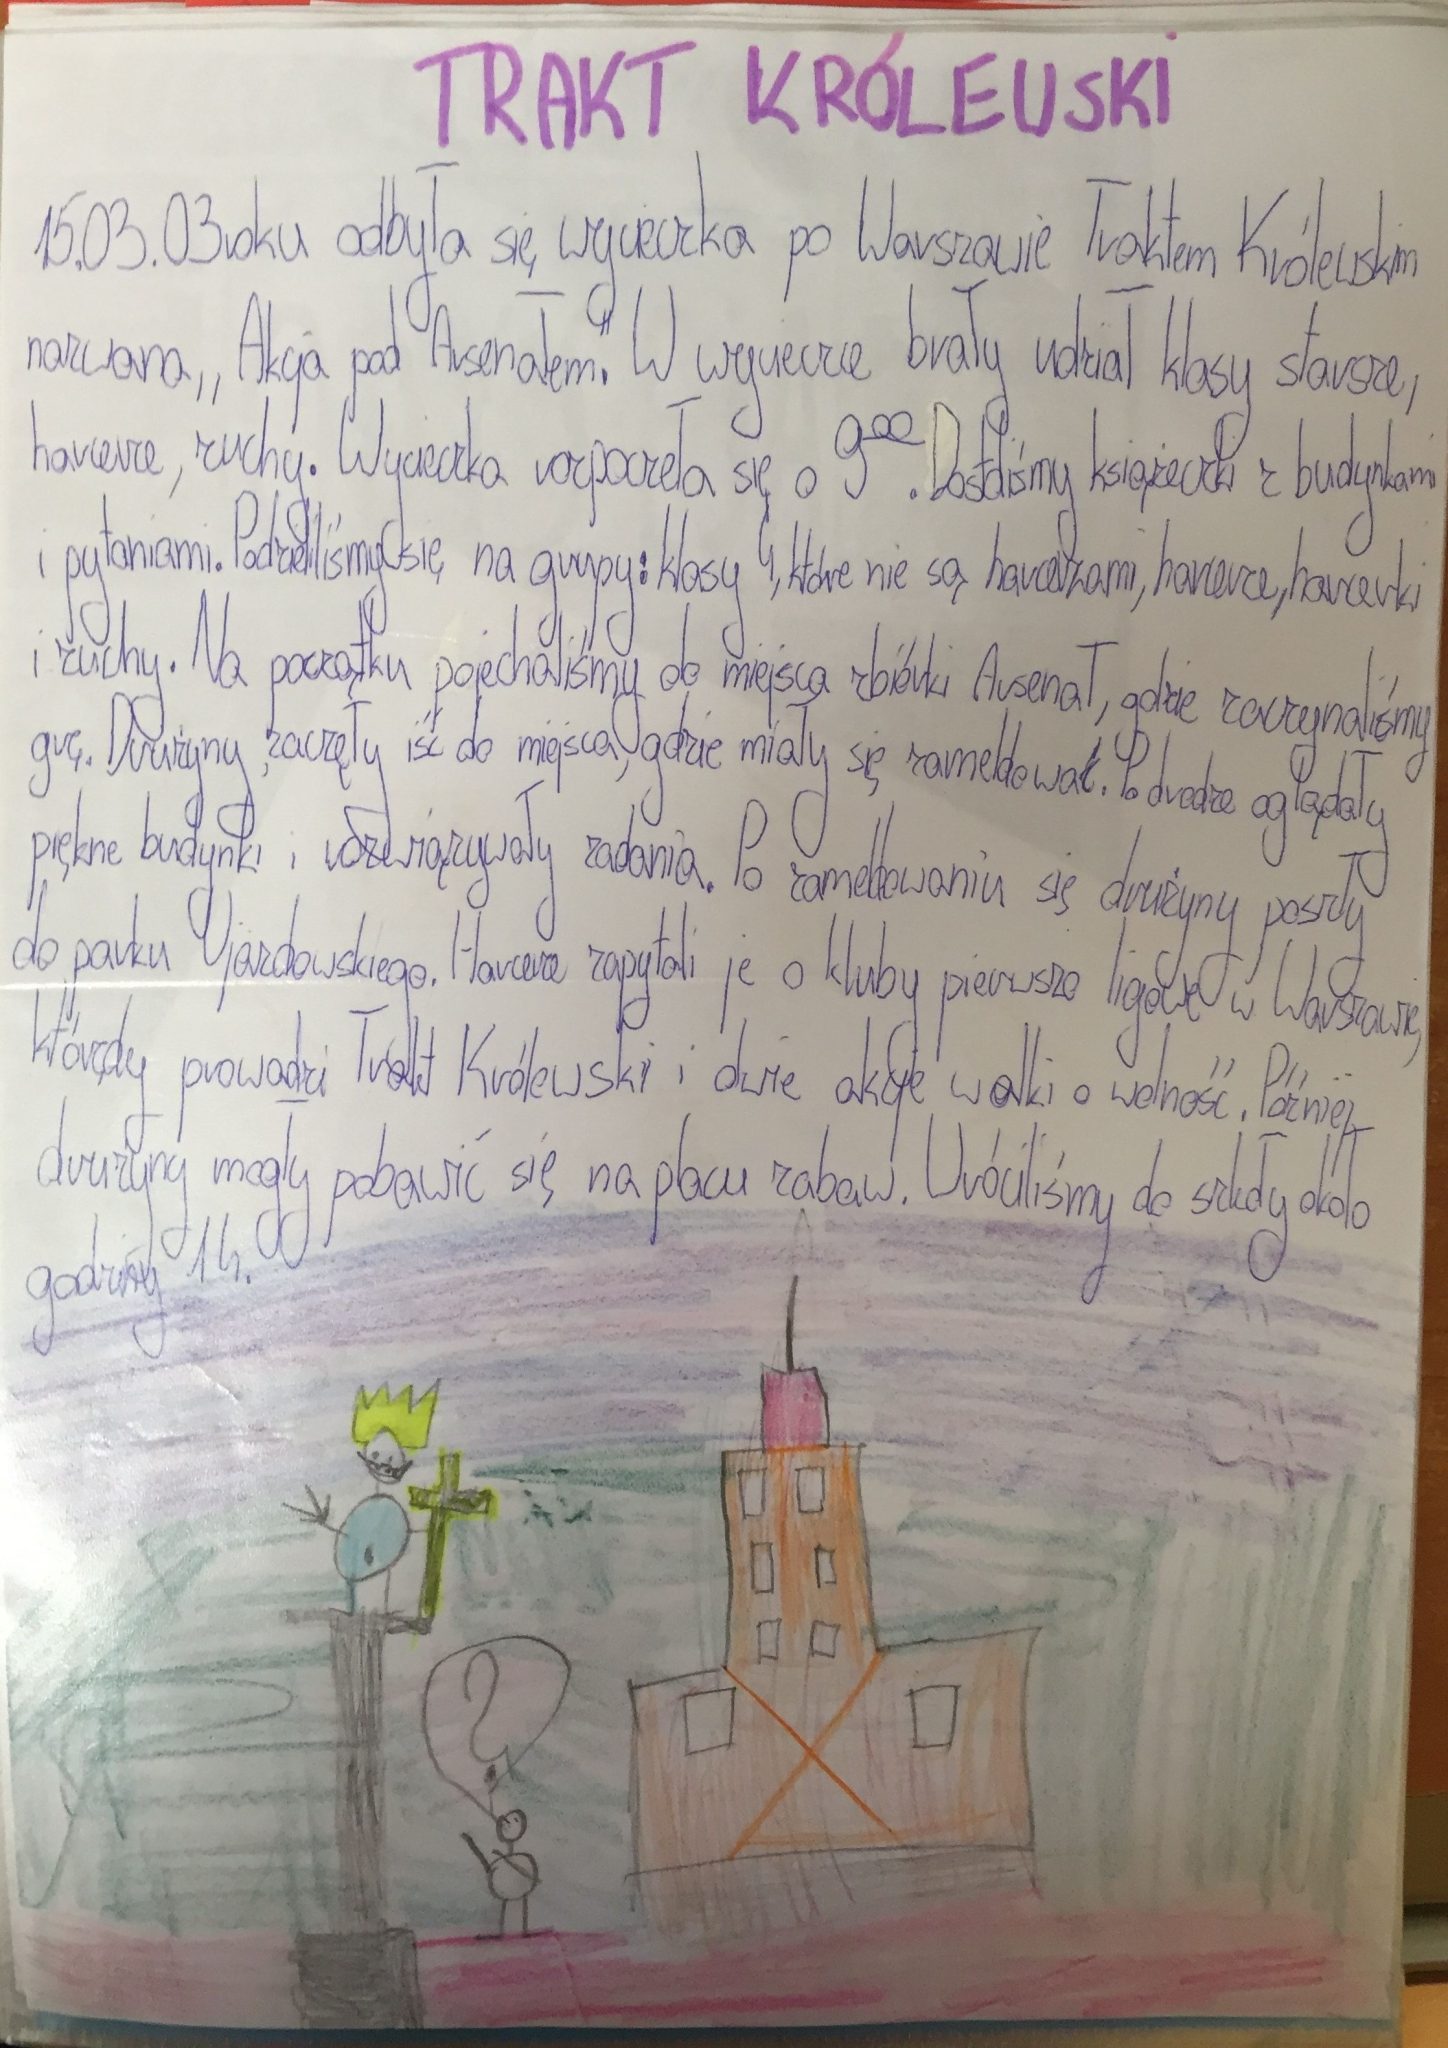 TRAKT KRÓLEWSKI
15.03.03 roku odbyła się wycieczka po Warszawie Traktem Królewskim
nazwana „Akcja pod Arsenałem." W wycieczce brały udział klasy starsze,
harcerze, zuchy. Wycieczka rozpoczeła się o 9ºº. Dostaliśmy książeczki z budynkami
i pytaniami. Podzieliliśmy się na grupy: klasy 4, które nie są harcerzami, harcerze, harcerki
i zuchy. Na początku pojechaliśmy do miejsca zbiórki Arsenał, gdzie zaczynaliśmy
grę. Drużyny zaczęły iść do miejsca, gdzie miały się zameldować. Po drodze oglądały
piękne budynki i rozwiązywały zadania. Po zameldowaniu się drużyny poszły
do parku Ujazdowskiego. Harcerze zapytali je o kluby pierwszo ligowe w Warszawie,
którędy prowadzi Trakt Królewski i dwie akcje walki o wolność. Później
drużyny mogły pobawić się na placu zabaw. Wróciliśmy do szkoły około
godziny 14.
?